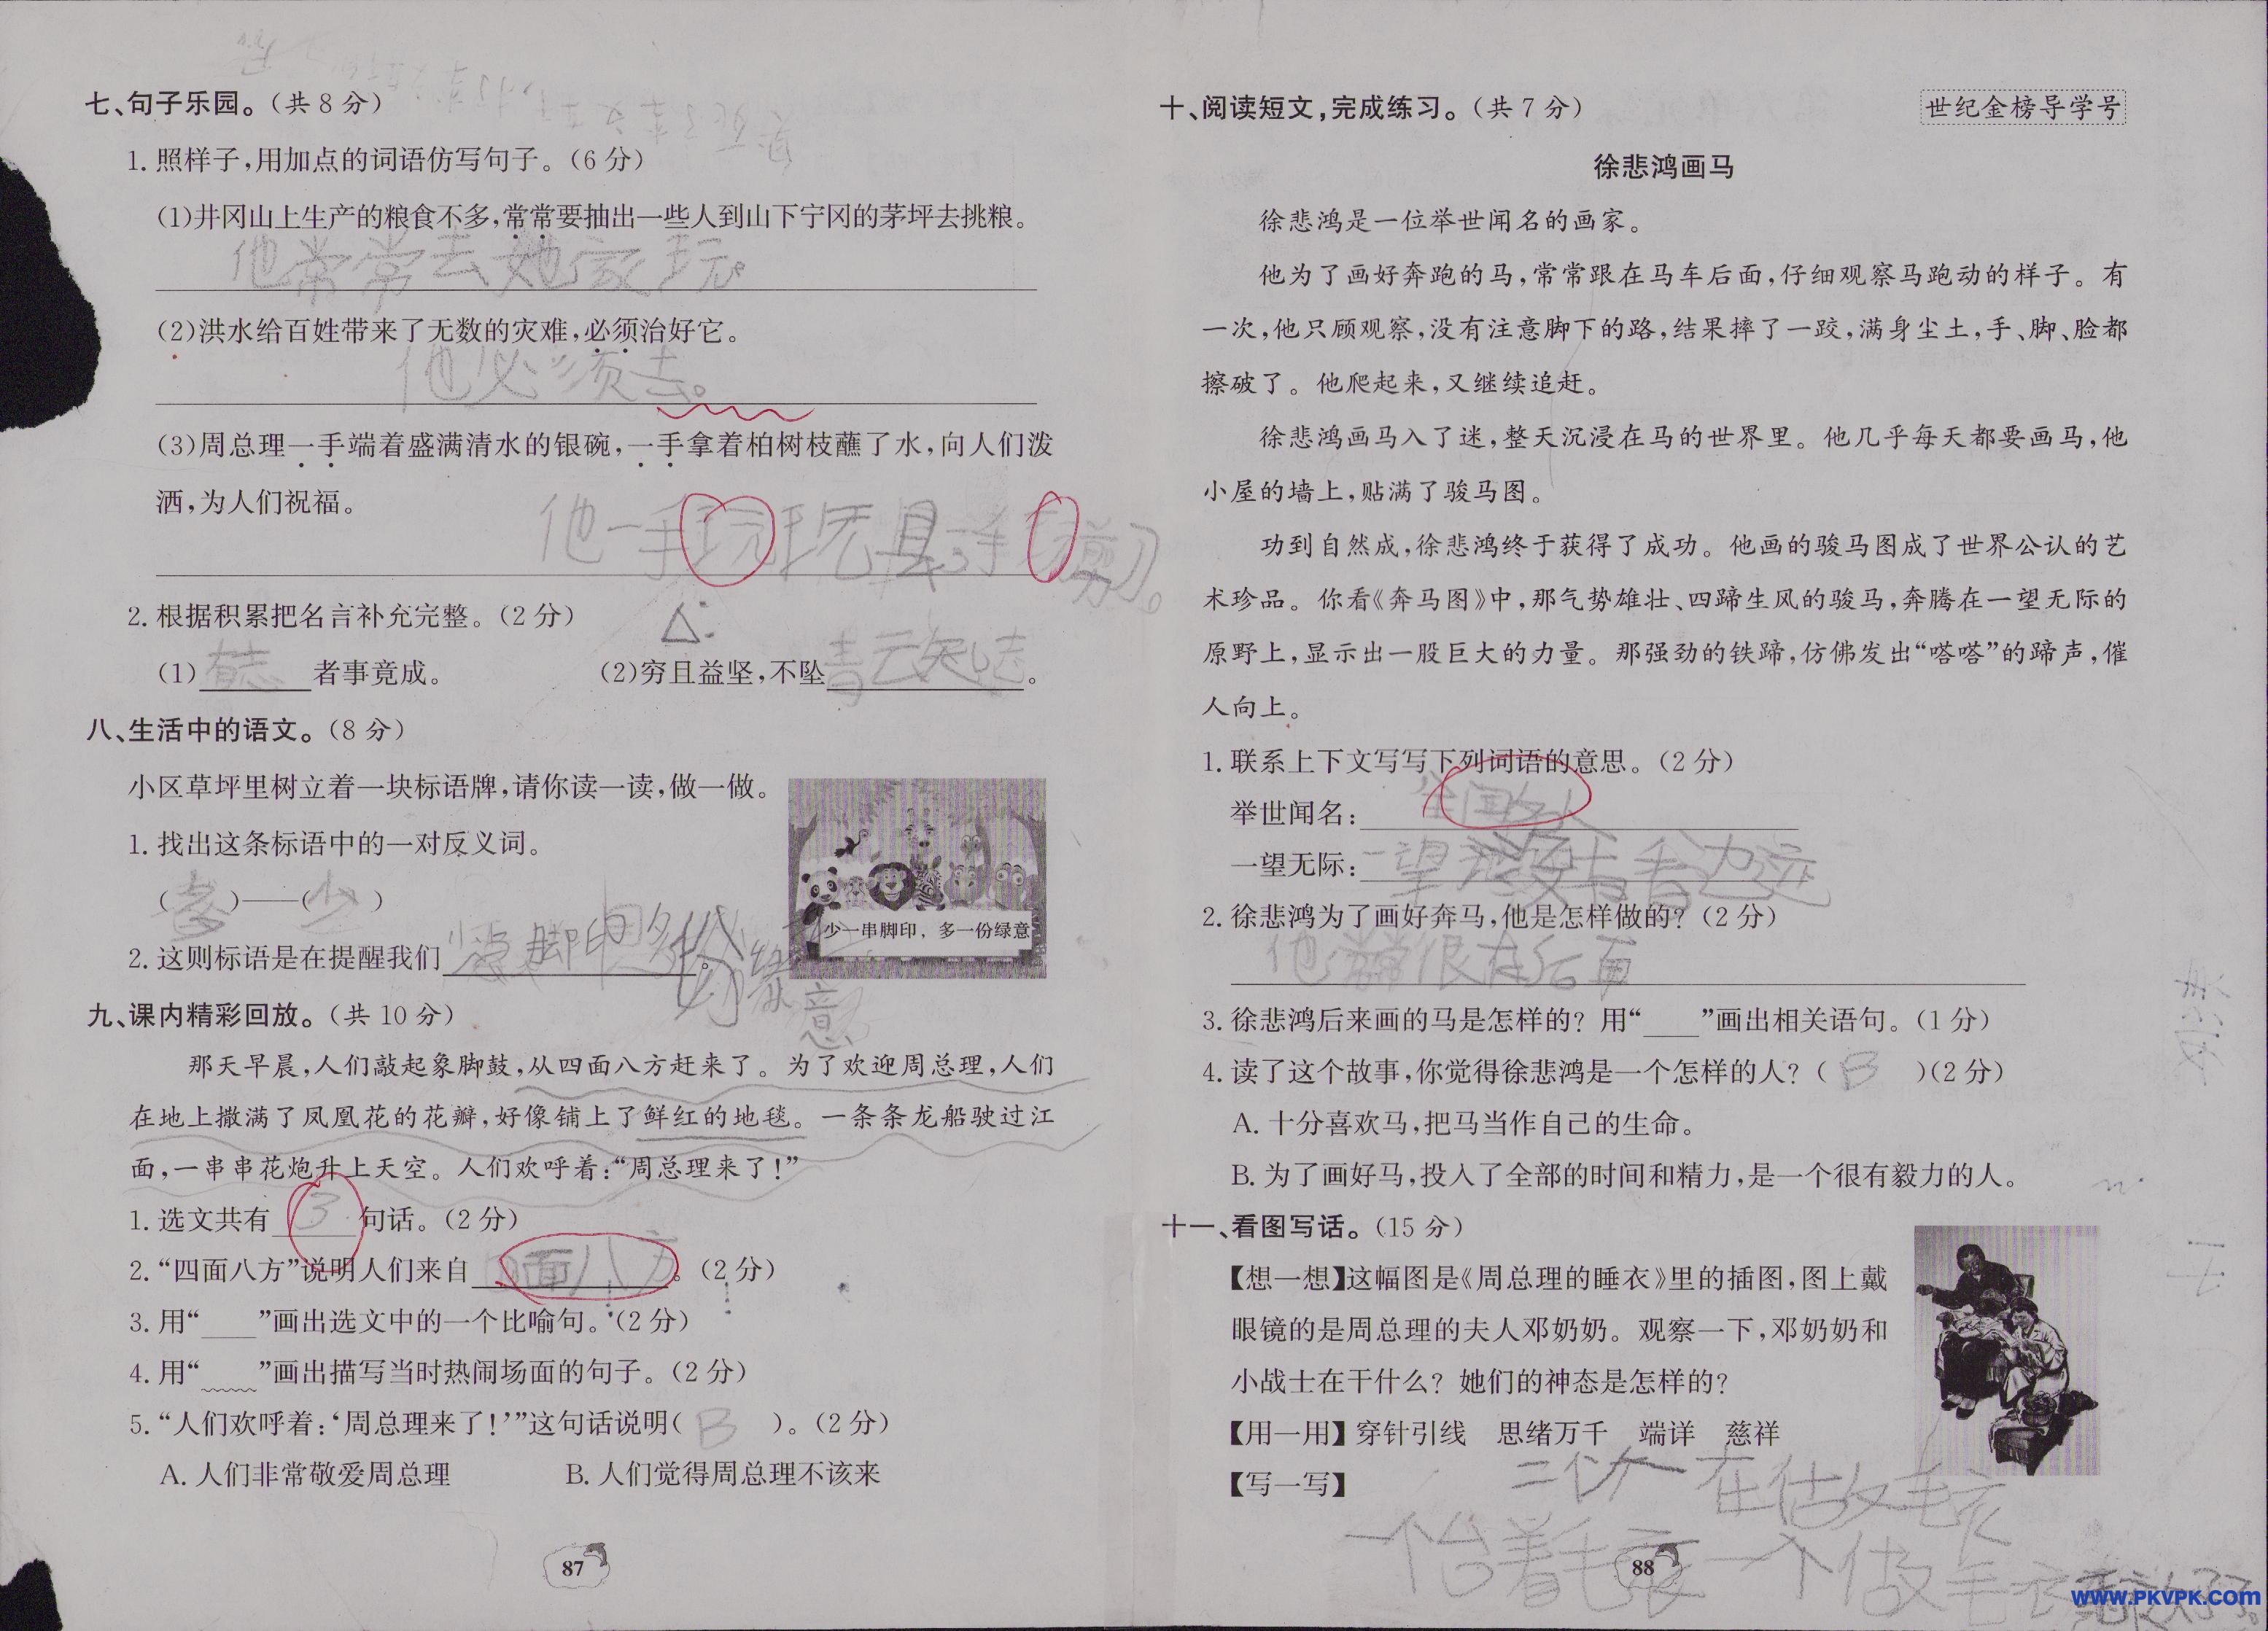 七、句子乐园。(共8分)
1. 照样子,用加点的词语仿写句子。(6分)
(1)井冈山上生产的粮食不多,常常要抽出一些人到山下宁冈的茅坪去挑粮。
他常常去她家玩。
(2)洪水给百姓带来了无数的灾难,必须治好它。
他必须去。
(3)周总理一手端着盛满清水的银碗,一手拿着柏树枝蘸了水,向人们泼
洒,为人们祝福。
他一手玩玩具,一手剪刀。
2. 根据积累把名言补充完整。(2分)
(1)有志者事竟成。 (2)穷且益坚,不坠青云之志。
八、生活中的语文。(8分)
小区草坪里树立着一块标语牌,请你读一读,做一做。
1. 找出这条标语中的一对反义词。
(多)——(少)
少一串脚印,多一份绿意
2. 这则标语是在提醒我们少踩脚印多一份绿意。
九、课内精彩回放。(共10分)
那天早晨,人们敲起象脚鼓,从四面八方赶来了。为了欢迎周总理,人们
在地上撒满了凤凰花的花瓣,好像铺上了鲜红的地毯。一条条龙船驶过江
面,一串串花炮升上天空。人们欢呼着:“周总理来了!”
1. 选文共有3句话。(2分)
2. “四面八方”说明人们来自四面八方。(2分)
3. 用“____”画出选文中的一个比喻句。(2分)
4. 用“﹏﹏”画出描写当时热闹场面的句子。(2分)
5. “人们欢呼着:‘周总理来了!’”这句话说明(B)。(2分)
A. 人们非常敬爱周总理 B. 人们觉得周总理不该来
87
十、阅读短文,完成练习。(共7分) 世纪金榜导学号
徐悲鸿画马
徐悲鸿是一位举世闻名的画家。
他为了画好奔跑的马,常常跟在马车后面,仔细观察马跑动的样子。有
一次,他只顾观察,没有注意脚下的路,结果摔了一跤,满身尘土,手、脚、脸都
擦破了。他爬起来,又继续追赶。
徐悲鸿画马入了迷,整天沉浸在马的世界里。他几乎每天都要画马,他
小屋的墙上,贴满了骏马图。
功到自然成,徐悲鸿终于获得了成功。他画的骏马图成了世界公认的艺
术珍品。你看《奔马图》中,那气势雄壮、四蹄生风的骏马,奔腾在一望无际的
原野上,显示出一股巨大的力量。那强劲的铁蹄,仿佛发出“嗒嗒”的蹄声,催
人向上。
1. 联系上下文写写下列词语的意思。(2分)
举世闻名:
一望无际:一望没有
2. 徐悲鸿为了画好奔马,他是怎样做的?(2分)
他常常很在后面
3. 徐悲鸿后来画的马是怎样的?用“____”画出相关语句。(1分)
4. 读了这个故事,你觉得徐悲鸿是一个怎样的人?(B)(2分)
A. 十分喜欢马,把马当作自己的生命。
B. 为了画好马,投入了全部的时间和精力,是一个很有毅力的人。
十一、看图写话。(15分)
【想一想】这幅图是《周总理的睡衣》里的插图,图上戴
眼镜的是周总理的夫人邓奶奶。观察一下,邓奶奶和
小战士在干什么?她们的神态是怎样的?
【用一用】穿针引线 思绪万千 端详 慈祥
【写一写】
二个人在做毛衣
一个 着毛衣一个做毛衣
88
www.PKVPK.com